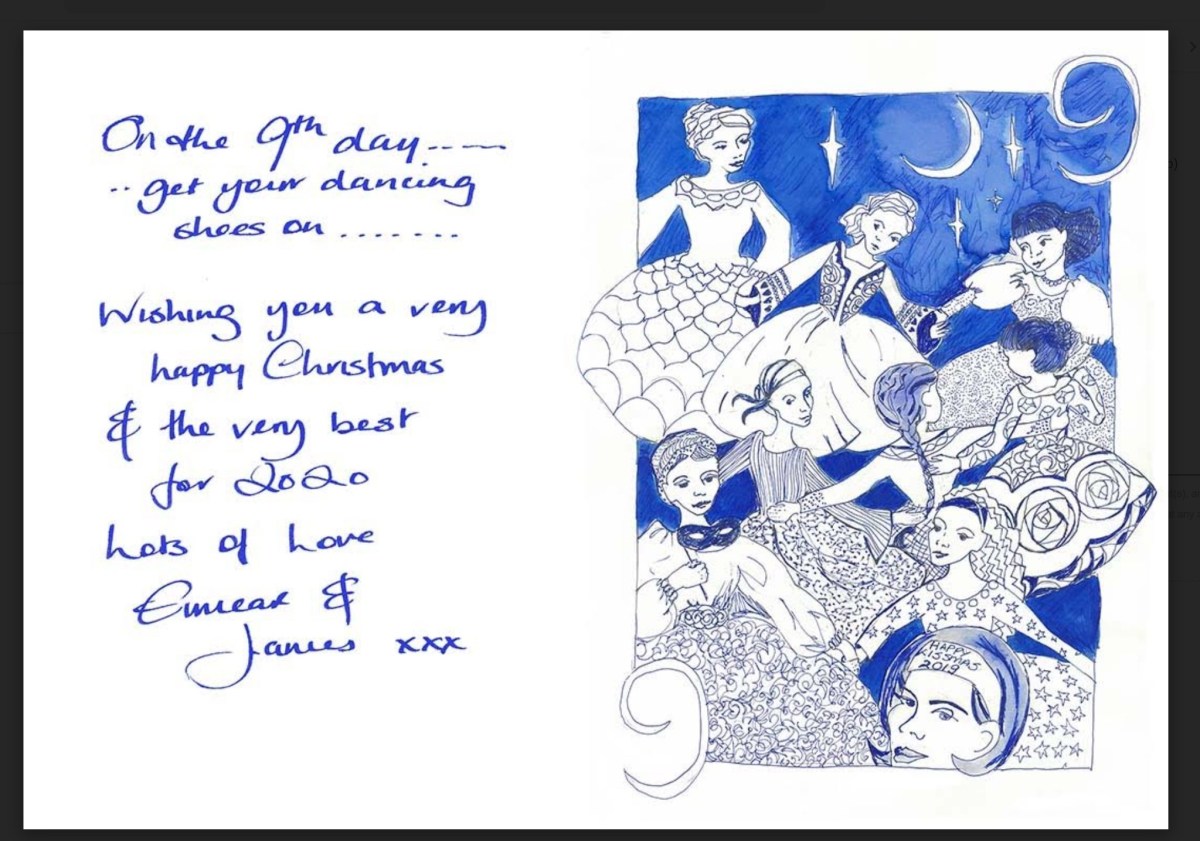 On the 9th day.....
..get your dancing
shoes on .......
Wishing you a very
happy Christmas
& the very best
for 2020
Lots of Love
Eimear &
James xxx
9
HAPPY
KISSMAS
2019
9